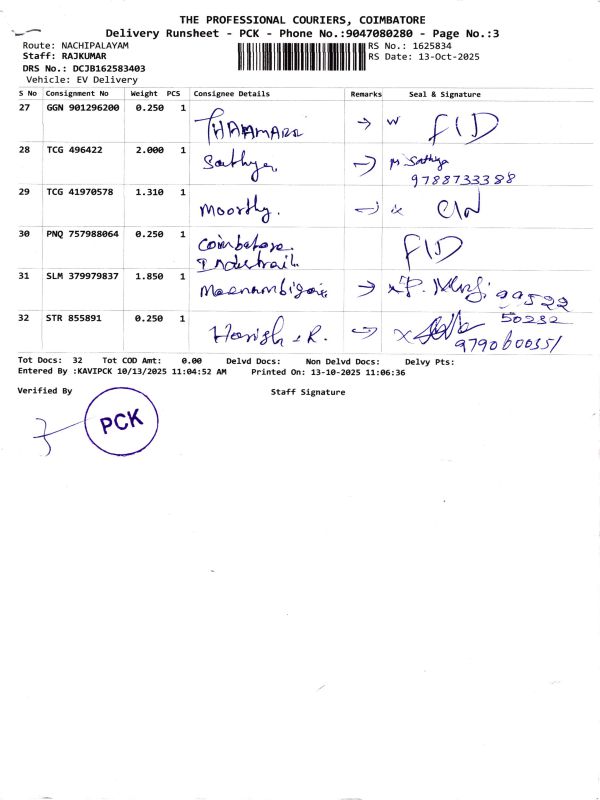 THE PROFESSIONAL COURIERS, COIMBATORE
Delivery Runsheet - PCK - Phone No.:9047080280 - Page No.:3
Route: NACHIPALAYAM RS No.: 1625834
Staff: RAJKUMAR RS Date: 13-Oct-2025
DRS No.: DCJB162583403
Vehicle: EV Delivery
S No Consignment No Weight PCS Consignee Details Remarks Seal & Signature
27 GGN 901296200 0.250 1 THAAMARA FID
28 TCG 496422 2.000 1 Sathya M. Sathya
9788733388
29 TCG 41970578 1.310 1 Moorthy.
30 PNQ 757988064 0.250 1 Coimbatore FID
31 SLM 379979837 1.850 1 99522
50232
32 STR 855891 0.250 1 Harish .R.
9790600351
Tot Docs: 32 Tot COD Amt: 0.00 Delvd Docs: Non Delvd Docs: Delvy Pts:
Entered By :KAVIPCK 10/13/2025 11:04:52 AM Printed On: 13-10-2025 11:06:36
Verified By Staff Signature
PCK